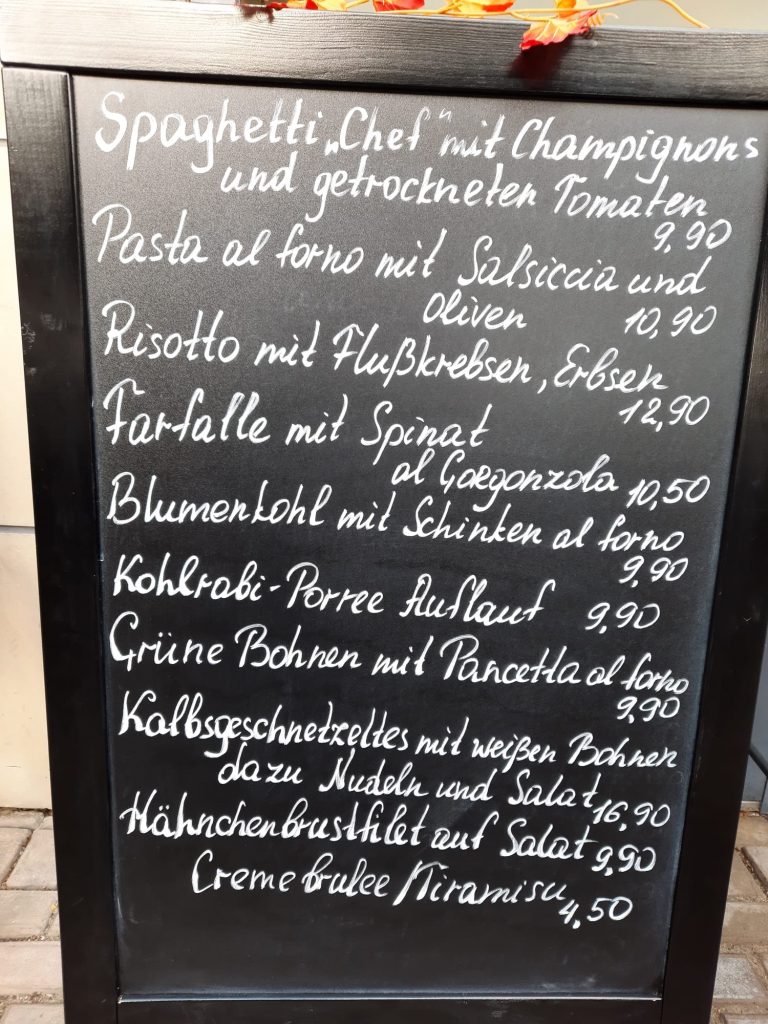 Spaghetti „Chef“ mit Champignons
und getrockneten Tomaten
9,90
Pasta al forno mit Salsiccia und
Oliven 10,90
Risotto mit Flußkrebsen, Erbsen
12,90
Farfalle mit Spinat
al Gorgonzola 10,50
Blumenkohl mit Schinken al forno
9,90
Kohlrabi-Porree Auflauf 9,90
Grüne Bohnen mit Pancetta al forno
9,90
Kalbsgeschnetzeltes mit weißen Bohnen
dazu Nudeln und Salat 16,90
Hähnchenbrustfilet auf Salat 9,90
Creme brulee / Tiramisu
4,50